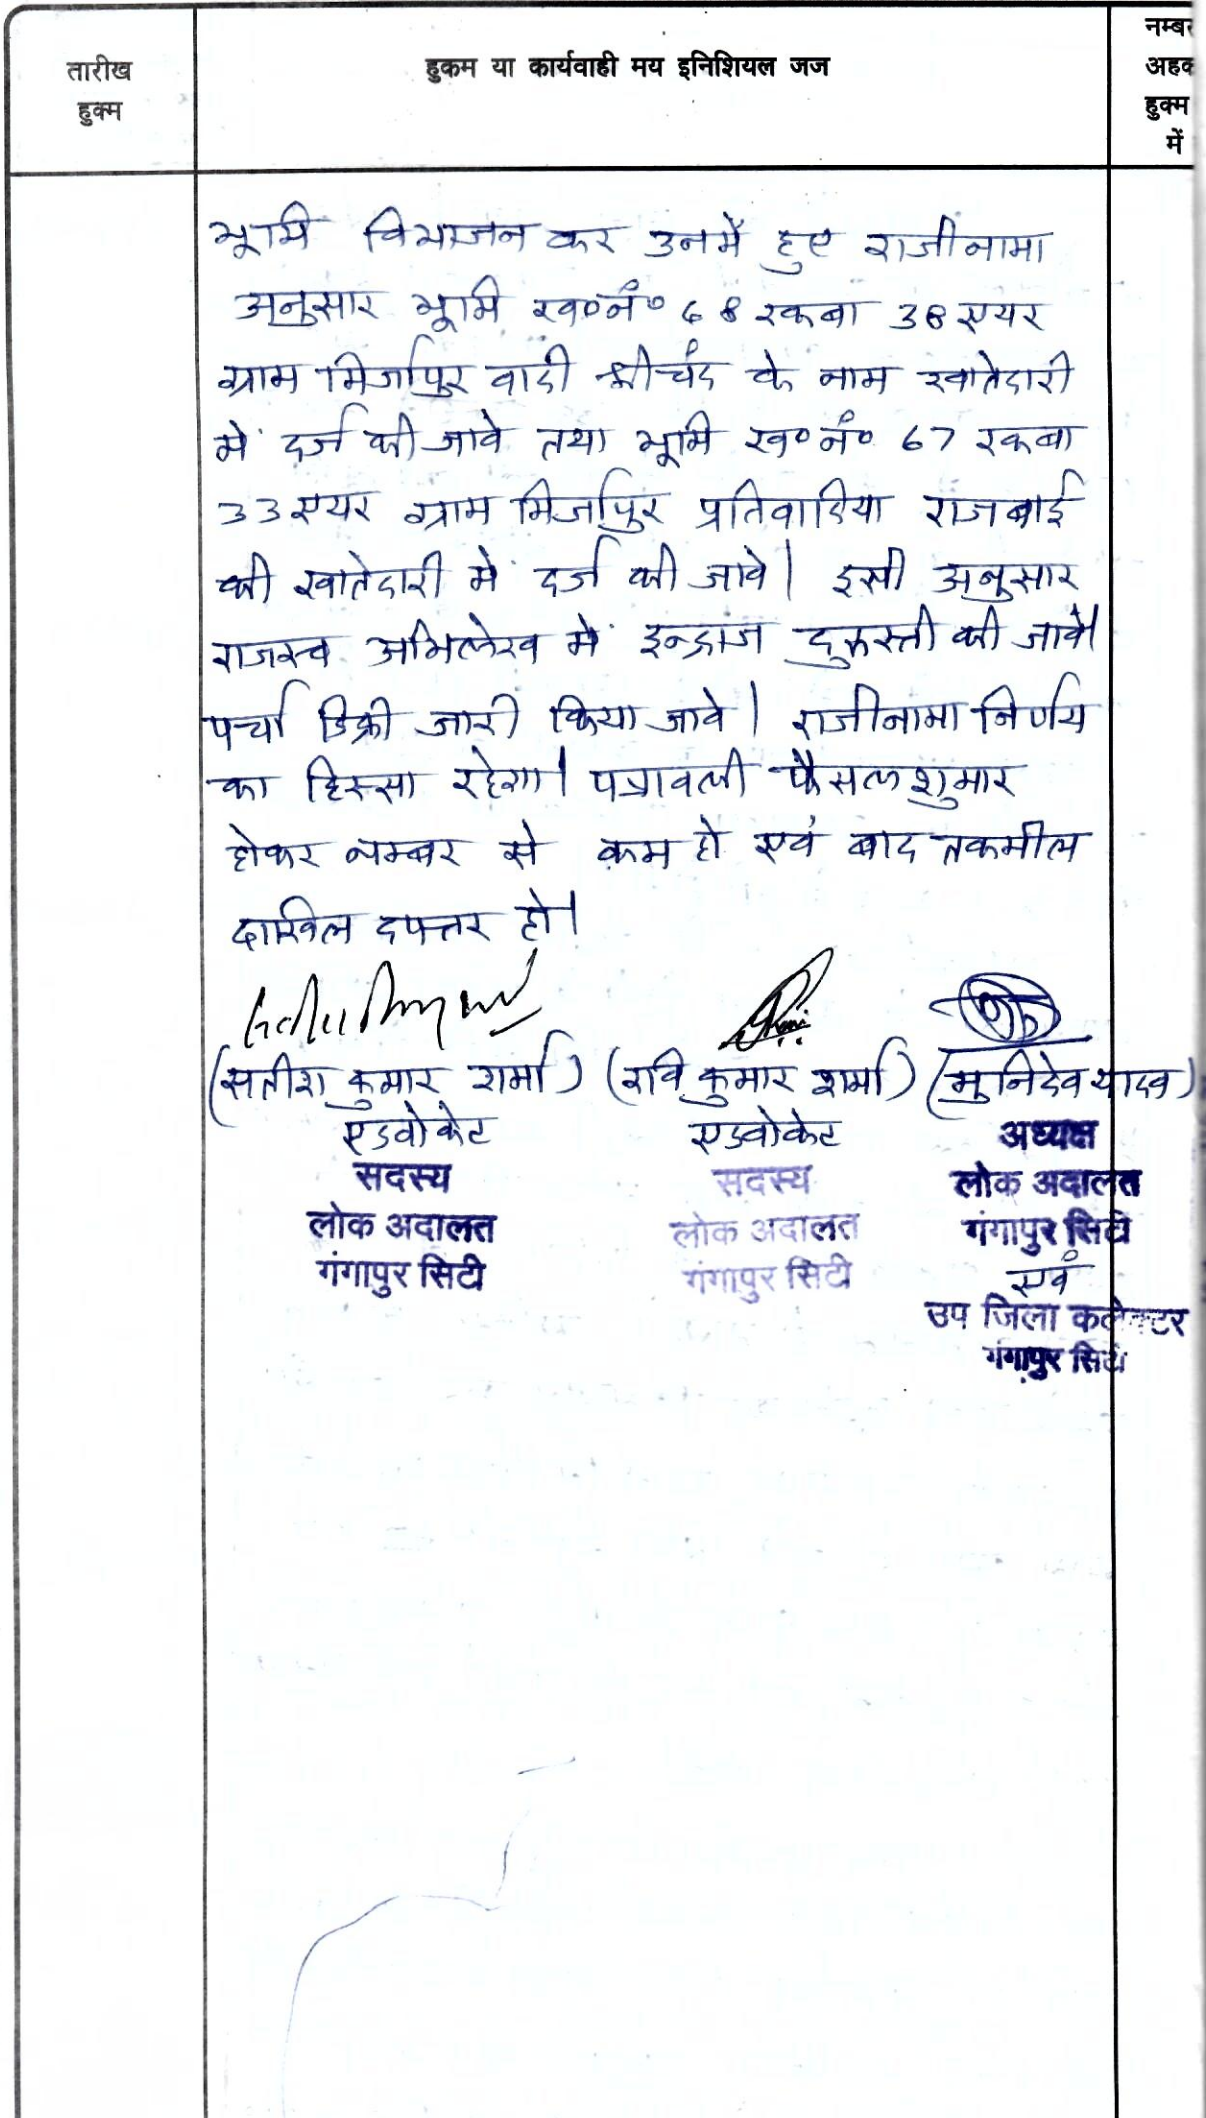 तारीख
हुक्म
हुकम या कार्यवाही मय इनिशियल जज
नम्बर
अहक
हुक्म
में
भूमि विभाजन कर उनमें हुए राजीनामा
अनुसार भूमि ख०नं० 68 रकबा 38 एयर
ग्राम मिर्जापुर वादी श्रीचंद के नाम खातेदारी
में दर्ज की जावे तथा भूमि ख०नं० 67 रकबा
33 एयर ग्राम मिर्जापुर प्रतिवादिया राजबाई
की खातेदारी में दर्ज की जावे। इसी अनुसार
राजस्व अभिलेख में इन्द्राज दुरुस्ती की जावे।
पर्चा डिक्री जारी किया जावे। राजीनामा निर्णय
का हिस्सा रहेगा। पत्रावली फैसल शुमार
होकर नम्बर से कम हो एवं बाद तकमील
दाखिल दफ्तर हो।
(सतीश कुमार शर्मा) (रवि कुमार शर्मा) (मुनिदेव यादव)
एडवोकेट एडवोकेट अध्यक्ष
सदस्य सदस्य लोक अदालत
लोक अदालत लोक अदालत गंगापुर सिटी
गंगापुर सिटी गंगापुर सिटी एवं
उप जिला कलेक्टर
गंगापुर सिटी